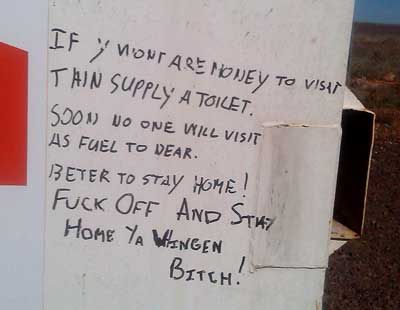 IF Y WONT ARE MONEY TO VISIT
THIN SUPPLY A TOILET.
SOON NO ONE WILL VISIT
AS FUEL TO DEAR.
BETER TO STAY HOME!
FUCK OFF AND STAY
HOME YA WHINGEN
BITCH!